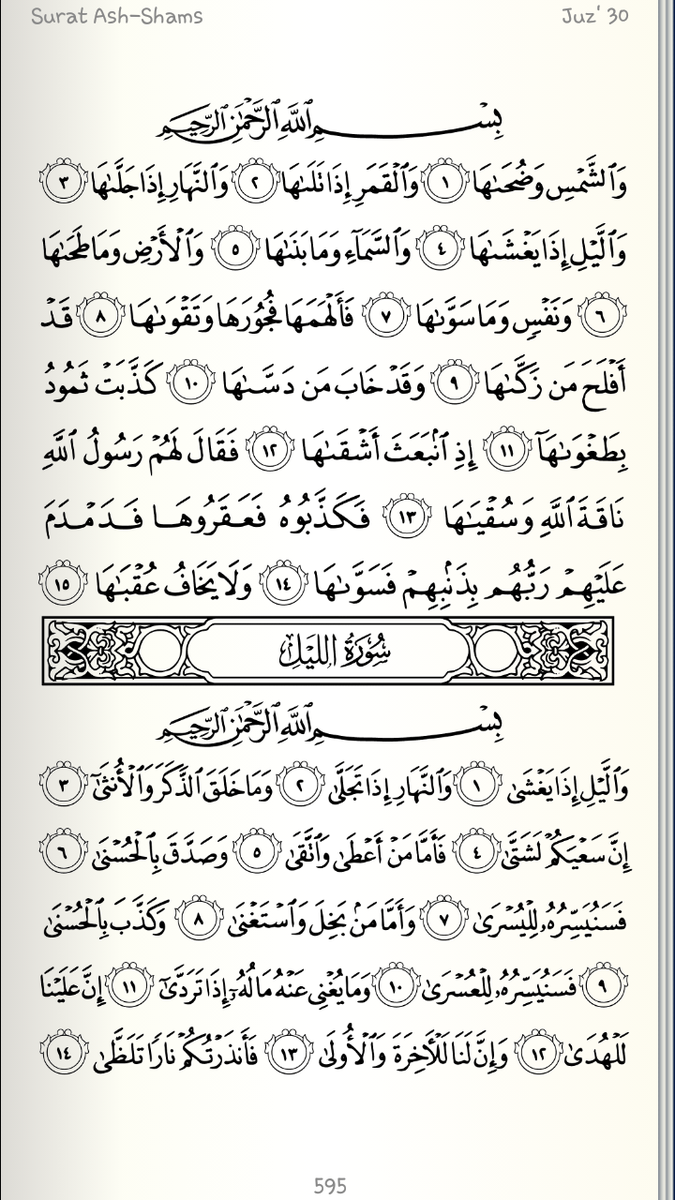 Surat Ash-Shams
Juz' 30
بِسْمِ ٱللَّهِ ٱلرَّحْمَٰنِ ٱلرَّحِيمِ
وَٱلشَّمْسِ وَضُحَىٰهَا ١ وَٱلْقَمَرِ إِذَا تَلَىٰهَا ٢ وَٱلنَّهَارِ إِذَا جَلَّىٰهَا ٣
وَٱلَّيْلِ إِذَا يَغْشَىٰهَا ٤ وَٱلسَّمَآءِ وَمَا بَنَىٰهَا ٥ وَٱلْأَرْضِ وَمَا طَحَىٰهَا
٦ وَنَفْسٍ وَمَا سَوَّىٰهَا ٧ فَأَلْهَمَهَا فُجُورَهَا وَتَقْوَىٰهَا ٨ قَدْ
أَفْلَحَ مَن زَكَّىٰهَا ٩ وَقَدْ خَابَ مَن دَسَّىٰهَا ١٠ كَذَّبَتْ ثَمُودُ
بِطَغْوَىٰهَآ ١١ إِذِ ٱنۢبَعَثَ أَشْقَىٰهَا ١٢ فَقَالَ لَهُمْ رَسُولُ ٱللَّهِ
نَاقَةَ ٱللَّهِ وَسُقْيَٰهَا ١٣ فَكَذَّبُوهُ فَعَقَرُوهَا فَدَمْدَمَ
عَلَيْهِمْ رَبُّهُم بِذَنۢبِهِمْ فَسَوَّىٰهَا ١٤ وَلَا يَخَافُ عُقْبَٰهَا ١٥
سُورَةُ اللَّيْلِ
بِسْمِ ٱللَّهِ ٱلرَّحْمَٰنِ ٱلرَّحِيمِ
وَٱلَّيْلِ إِذَا يَغْشَىٰ ١ وَٱلنَّهَارِ إِذَا تَجَلَّىٰ ٢ وَمَا خَلَقَ ٱلذَّكَرَ وَٱلْأُنثَىٰٓ ٣
إِنَّ سَعْيَكُمْ لَشَتَّىٰ ٤ فَأَمَّا مَنْ أَعْطَىٰ وَٱتَّقَىٰ ٥ وَصَدَّقَ بِٱلْحُسْنَىٰ ٦
فَسَنُيَسِّرُهُۥ لِلْيُسْرَىٰ ٧ وَأَمَّا مَنۢ بَخِلَ وَٱسْتَغْنَىٰ ٨ وَكَذَّبَ بِٱلْحُسْنَىٰ
٩ فَسَنُيَسِّرُهُۥ لِلْعُسْرَىٰ ١٠ وَمَا يُغْنِى عَنْهُ مَالُهُۥٓ إِذَا تَرَدَّىٰٓ ١١ إِنَّ عَلَيْنَا
لَلْهُدَىٰ ١٢ وَإِنَّ لَنَا لَلْءَاخِرَةَ وَٱلْأُولَىٰ ١٣ فَأَنذَرْتُكُمْ نَارًا تَلَظَّىٰ ١٤
595